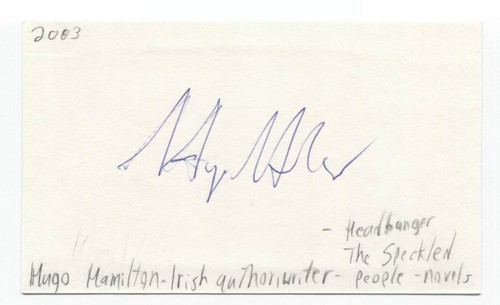 2003
- Headbanger
The Speckled
Hugo Hamilton-Irish author/writer- people -novels